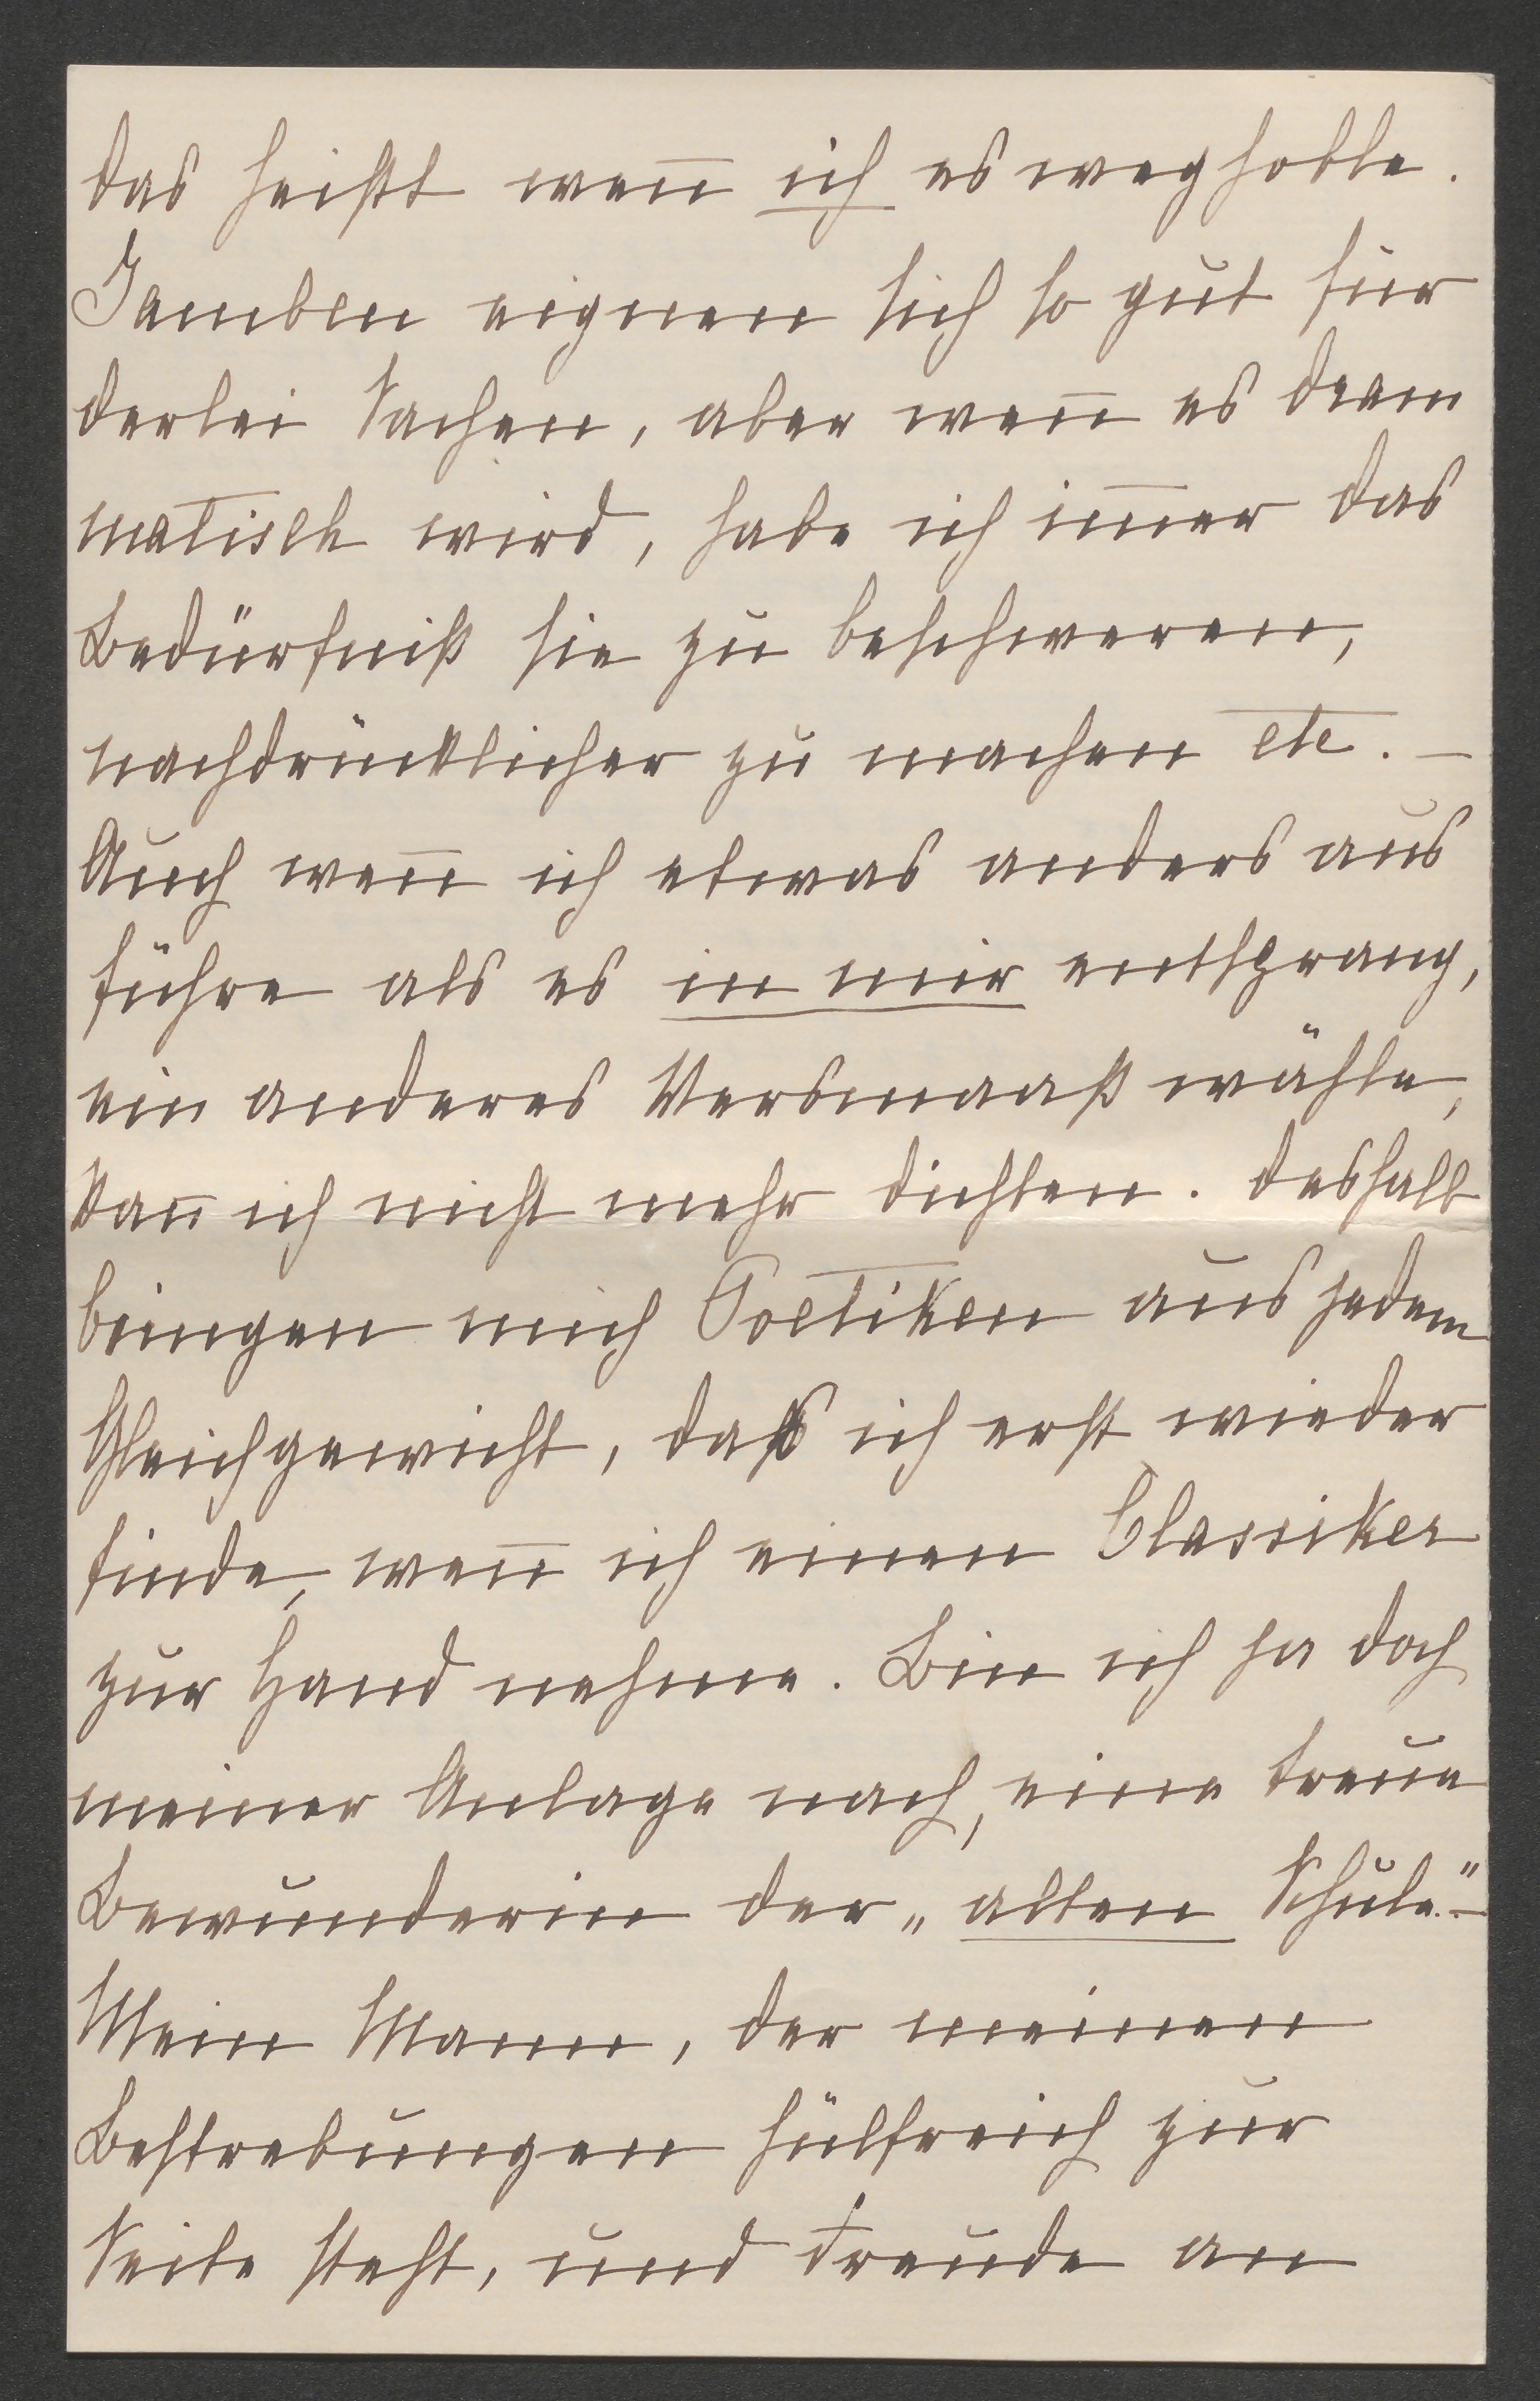 das heißt wen̄ ich es weghoble.
Jamben eignen sich so gut für
derlei Sachen, aber wen̄ es dram
matisch wird, habe ich im̄er das
Bedürfniß sie zu beschweren,
nachdrücklicher zu machen etc. –
Auch wen̄ ich etwas anders aus
führe als es in mir entsprang,
ein anderes Versmaaß wähle,
kan̄ ich nicht mehr dichten. Deshalb
bringen mich Poetiken aus jedem
Gleichgewicht, das ich erst wieder
finde, wen̄ ich einen Classiker
zur Hand nehme. Bin ich ja doch
meiner Anlage nach, eine treue
Bewunderin der „alten Schule." –
Mein Mann, der meinen
Bestrebungen hülfreich zur
Seite steht, und Freude an